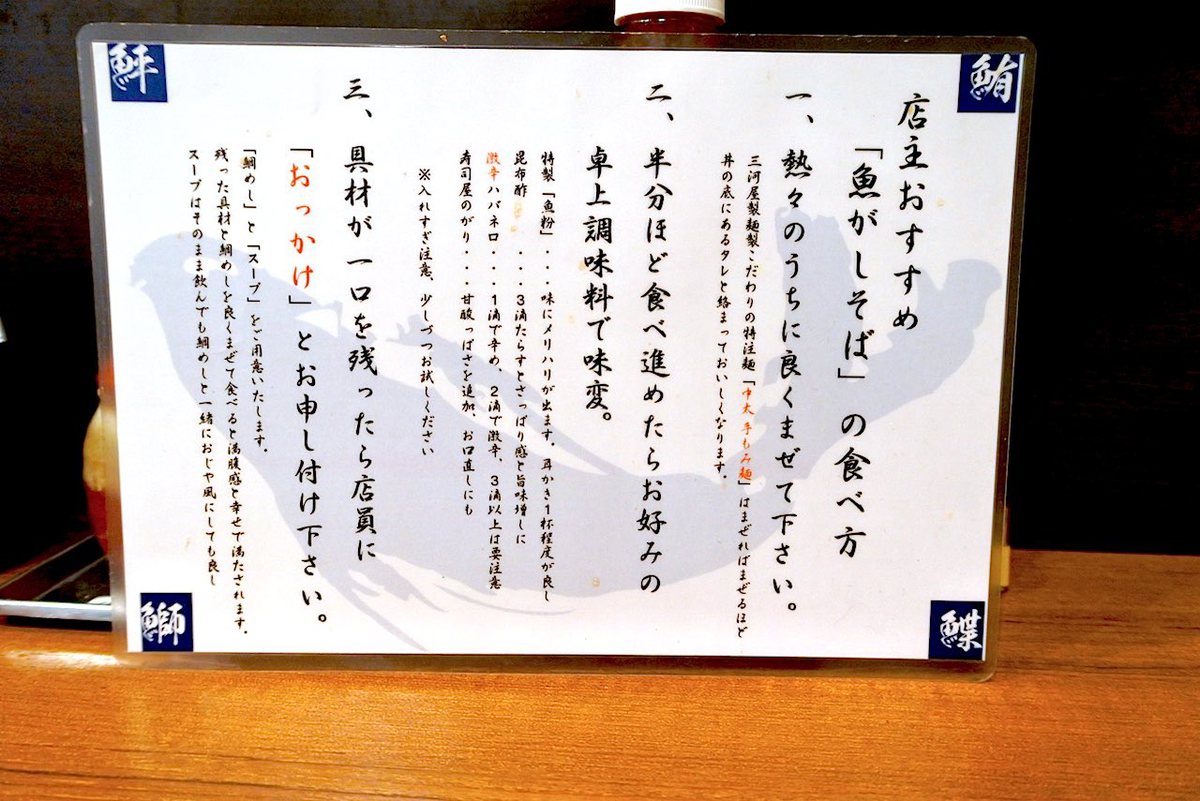 鮪
店主おすすめ
「魚がしそば」の食べ方
一、熱々のうちに良くまぜて下さい。
三河屋製麺製こだわりの特注麺「中太手もみ麺」はまぜればまぜるほど
丼の底にあるタレと絡まっておいしくなります。
二、半分ほど食べ進めたらお好みの
卓上調味料で味変。
特製「魚粉」・・・味にメリハリが出ます。耳かき1杯程度が良し
昆布酢・・・3滴たらすとさっぱり感と旨味増しに
激辛ハバネロ・・・1滴で辛め、2滴で激辛、3滴以上は要注意
寿司屋のがり・・・甘酸っぱさを追加、お口直しにも
※入れすぎ注意、少しづつお試しください
三、具材が一口を残ったら店員に
「おっかけ」とお申し付け下さい。
「鯛めし」と「スープ」をご用意いたします。
残った具材と鯛めしを良くまぜて食べると満腹感と幸せで満たされます。
スープはそのまま飲んでも鯛めしと一緒におじや風にしても良し
鮃
鰤
鰈